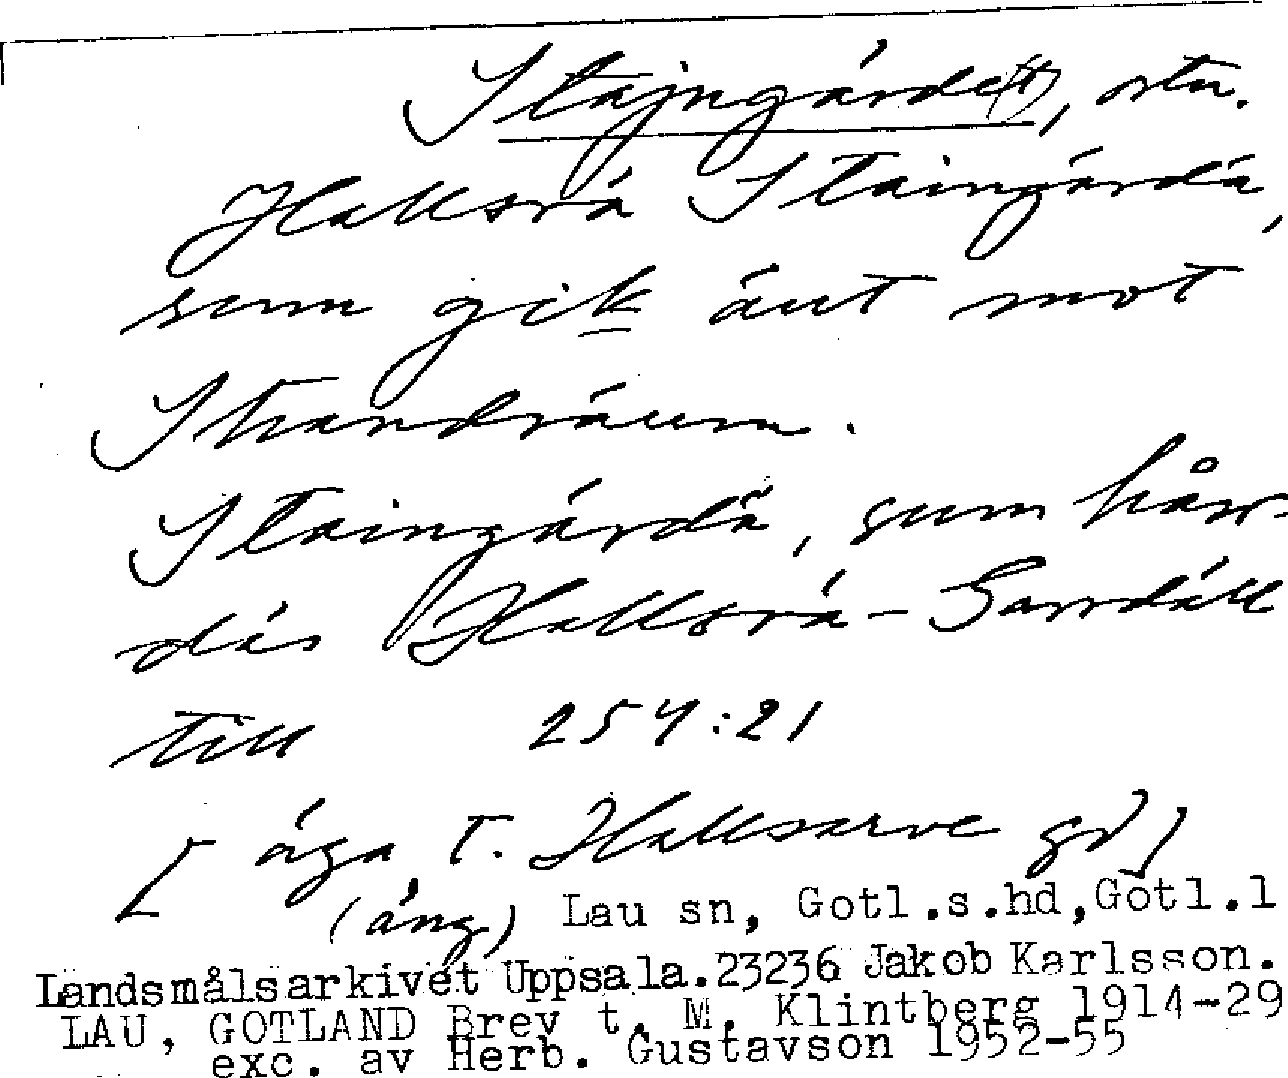 Stajngårde(t), ortn.
Hallsrá Staingárdä,
sum gik áut mot
Strandráum.
Staingárdä, sum hårr-
dás Hallsrá-Sarrdáll
till 254:21
[äga t. Hallsarve gd]
(äng) Lau sn, Gotl.s.hd, Gotl.l
Landsmålsarkivet Uppsala. 23236 Jakob Karlsson.
LAU, GOTLAND Brev t. M. Klintberg 1914-29
exc. av Herb. Gustavson 1952-55